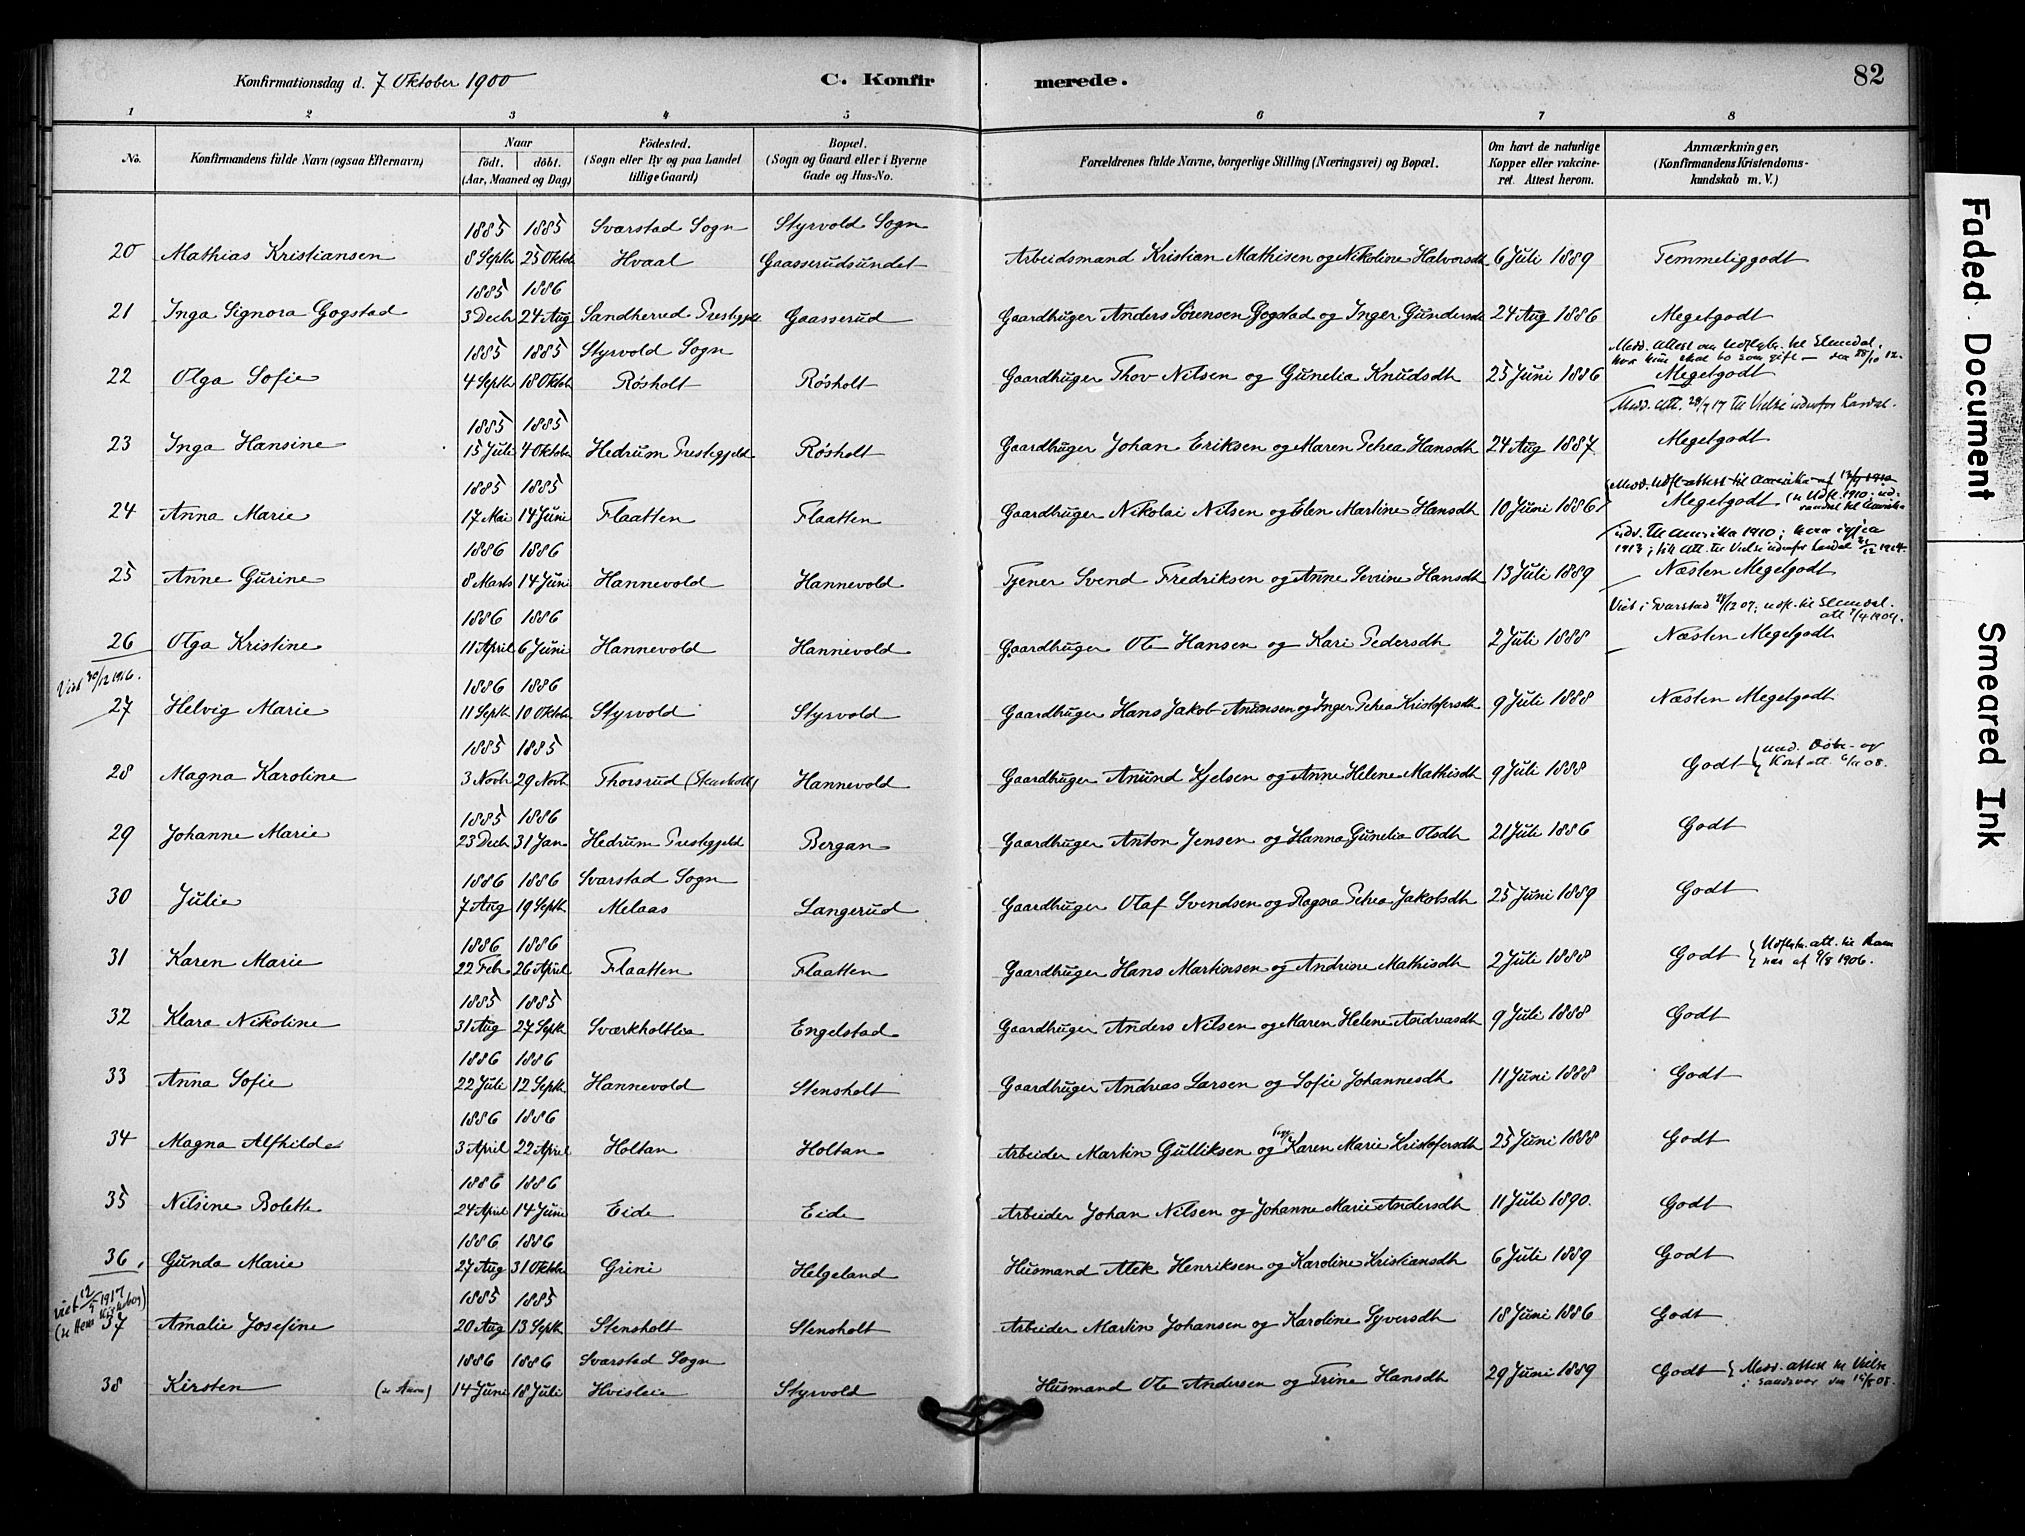 Konfirmationsdag d. 7 Oktober 1900 C. Konfirmerede. 82
1 2 3 4 5 6 7 8
No. Konfirmandens fulde Navn (ogsaa Efternavn) Naar født. døbt. (Aar, Maaned og Dag) Fødested. (Sogn eller By og paa Landet tillige Gaard) Bopæl. (Sogn og Gaard eller i Byerne Gade og Hus-No. Forældrenes fulde Navne, borgerlige Stilling (Næringsvei) og Bopæl. Om havt de naturlige Kopper eller vaccineret. Attest herom. Anmærkninger, (Konfirmandens Kristendomskundskab m. V.)
1885 1885 Svarstad Sogn Styrvold Sogn
20 Mathias Kristiansen 8 Septb 25 Oktob Hvaal Gaasserudsundet Arbeidsmand Kristian Mathisen og Nikoline Halvorsdt 6 Juli 1889 Temmeliggodt
1885 1886
21 Inga Signora Gogstad 3 Decb 24 Aug Sandherred Prestegjeld Gaasserud Gaardbruger Anders Sørensen Gogstad og Inger Gundersdt 24 Aug 1886 Megetgodt
1885 1885 Styrvold Sogn Medd. attest om Udflytn. til Slemdal,
hvor hun skal bo som gift – den 28/10 12.
22 Olga Sofie 4 Septb 18 Oktob Røsholt Røsholt Gaardbruger Thov Nilsen og Gunelia Knudsdt 25 Juni 1886 Megetgodt
Medd. att. 28/7 17 til Vielse udenfor Lardal.
1885 1885
23 Inga Hansine 15 Juli 4 Oktob Hedrum Prestegjeld Røsholt Gaardbruger Johan Eriksen og Maren Petrea Hansdt 24 Aug 1887 Megetgodt
1885 1885 Medd. Udfl. attest til Amerika af 1910
24 Anna Marie 17 Mai 14 Juni Flaatten Flaatten Gaardbruger Nikolai Nilsen og Elen Martine Hansdt 10 Juni 1886 Megetgodt (se Udfl. 1910; udvandret til Amerika
1886 1886 udv. til Amerika 1910; kom igjen
1913; fik att. til Vielse udenfor Lardal 1914.
25 Anne Gurine 8 Marts 14 Juni Hannevold Hannevold Tjener Svend Fredriksen og Anne Severine Hansdt 13 Juli 1889 Næsten Megetgodt
1886 1886 Viet i Svarstad 28/12 07; udfl. til Slemdal.
att 7/4 1909.
26 Olga Kristine 11 April 6 Juni Hannevold Hannevold Gaardbruger Ole Hansen og Kari Pedersdt 2 Juli 1888 Næsten Megetgodt
Viet 30/12 1916. 1886 1886
27 Helvig Marie 11 Septb 10 Oktob Styrvold Styrvold Gaardbruger Hans Jakob Anundsen og Inger Petrea Kristofersdt 9 Juli 1888 Næsten Megetgodt
1885 1885
28 Magna Karoline 3 Novb 29 Novb Thorsrud Hannevold Gaardbruger Anund Kjelsen og Anne Helene Mathisdt 9 Juli 1888 Godt { Medd. Døbe- og Konf. att. 6/11 08.
1885 1886
29 Johanne Marie 23 Decb 31 Jan Hedrum Prestegjeld Bergan Gaardbruger Anton Jensen og Hanna Gunelia Olsdt 21 Juli 1886 Godt
1886 1886 Svarstad Sogn
30 Julie 7 Aug 19 Septb Melaas Langerud Gaardbruger Olaf Svendsen og Ragna Petrea Jakobsdt 25 Juni 1889 Godt
1886 1886
31 Karen Marie 22 Feb. 26 April Flaatten Flaatten Gaardbruger Hans Martinsen og Andrine Mathisdt 2 Juli 1888 Godt { Udflytn. att. til Ramnæs af 9/8 1906.
1885 1885
32 Klara Nikoline 31 Aug 27 Septb Sværkholtlia Engelstad Gaardbruger Anders Nilsen og Maren Helene Andreasdt 9 Juli 1888 Godt
1886 1886
33 Anna Sofie 22 Juli 12 Septb Hannevold Stensholt Gaardbruger Andreas Larsen og Sofie Johannesdt 11 Juni 1888 Godt
1886 1886
34 Magna Alfhilde 3 April 22 April Holtan Holtan Arbeider Martin Gulliksen og Karen Marie Kristofersdt 25 Juni 1888 Godt
1886 1886
35 Nilsine Bolette 24 April 14 Juni Eide Eide Arbeider Johan Nilsen og Johanne Marie Andersdt 11 Juli 1890. Godt
1886 1886
36 Gunda Marie 27 Aug 31 Oktob Grini Helgeland Husmand Alek Henriksen og Karoline Kristiansdt 6 Juli 1889 Godt
viet 12/5 1917 1885 1885
37 Amalie Josefine 20 Aug 13 Septb Stensholt Stensholt Arbeider Martin Johansen og Karoline Syversdt 18 Juni 1886 Godt
1886 1886 Svarstad Sogn
38 Kirsten 14 Juni 18 Juli Hvisleie Styrvold Husmand Ole Andersen og Trine Hansdt 29 Juni 1889 Godt { Medd. attest til Vielse i Sandsvær den 15/5 08.
Faded Document
Smeared Ink